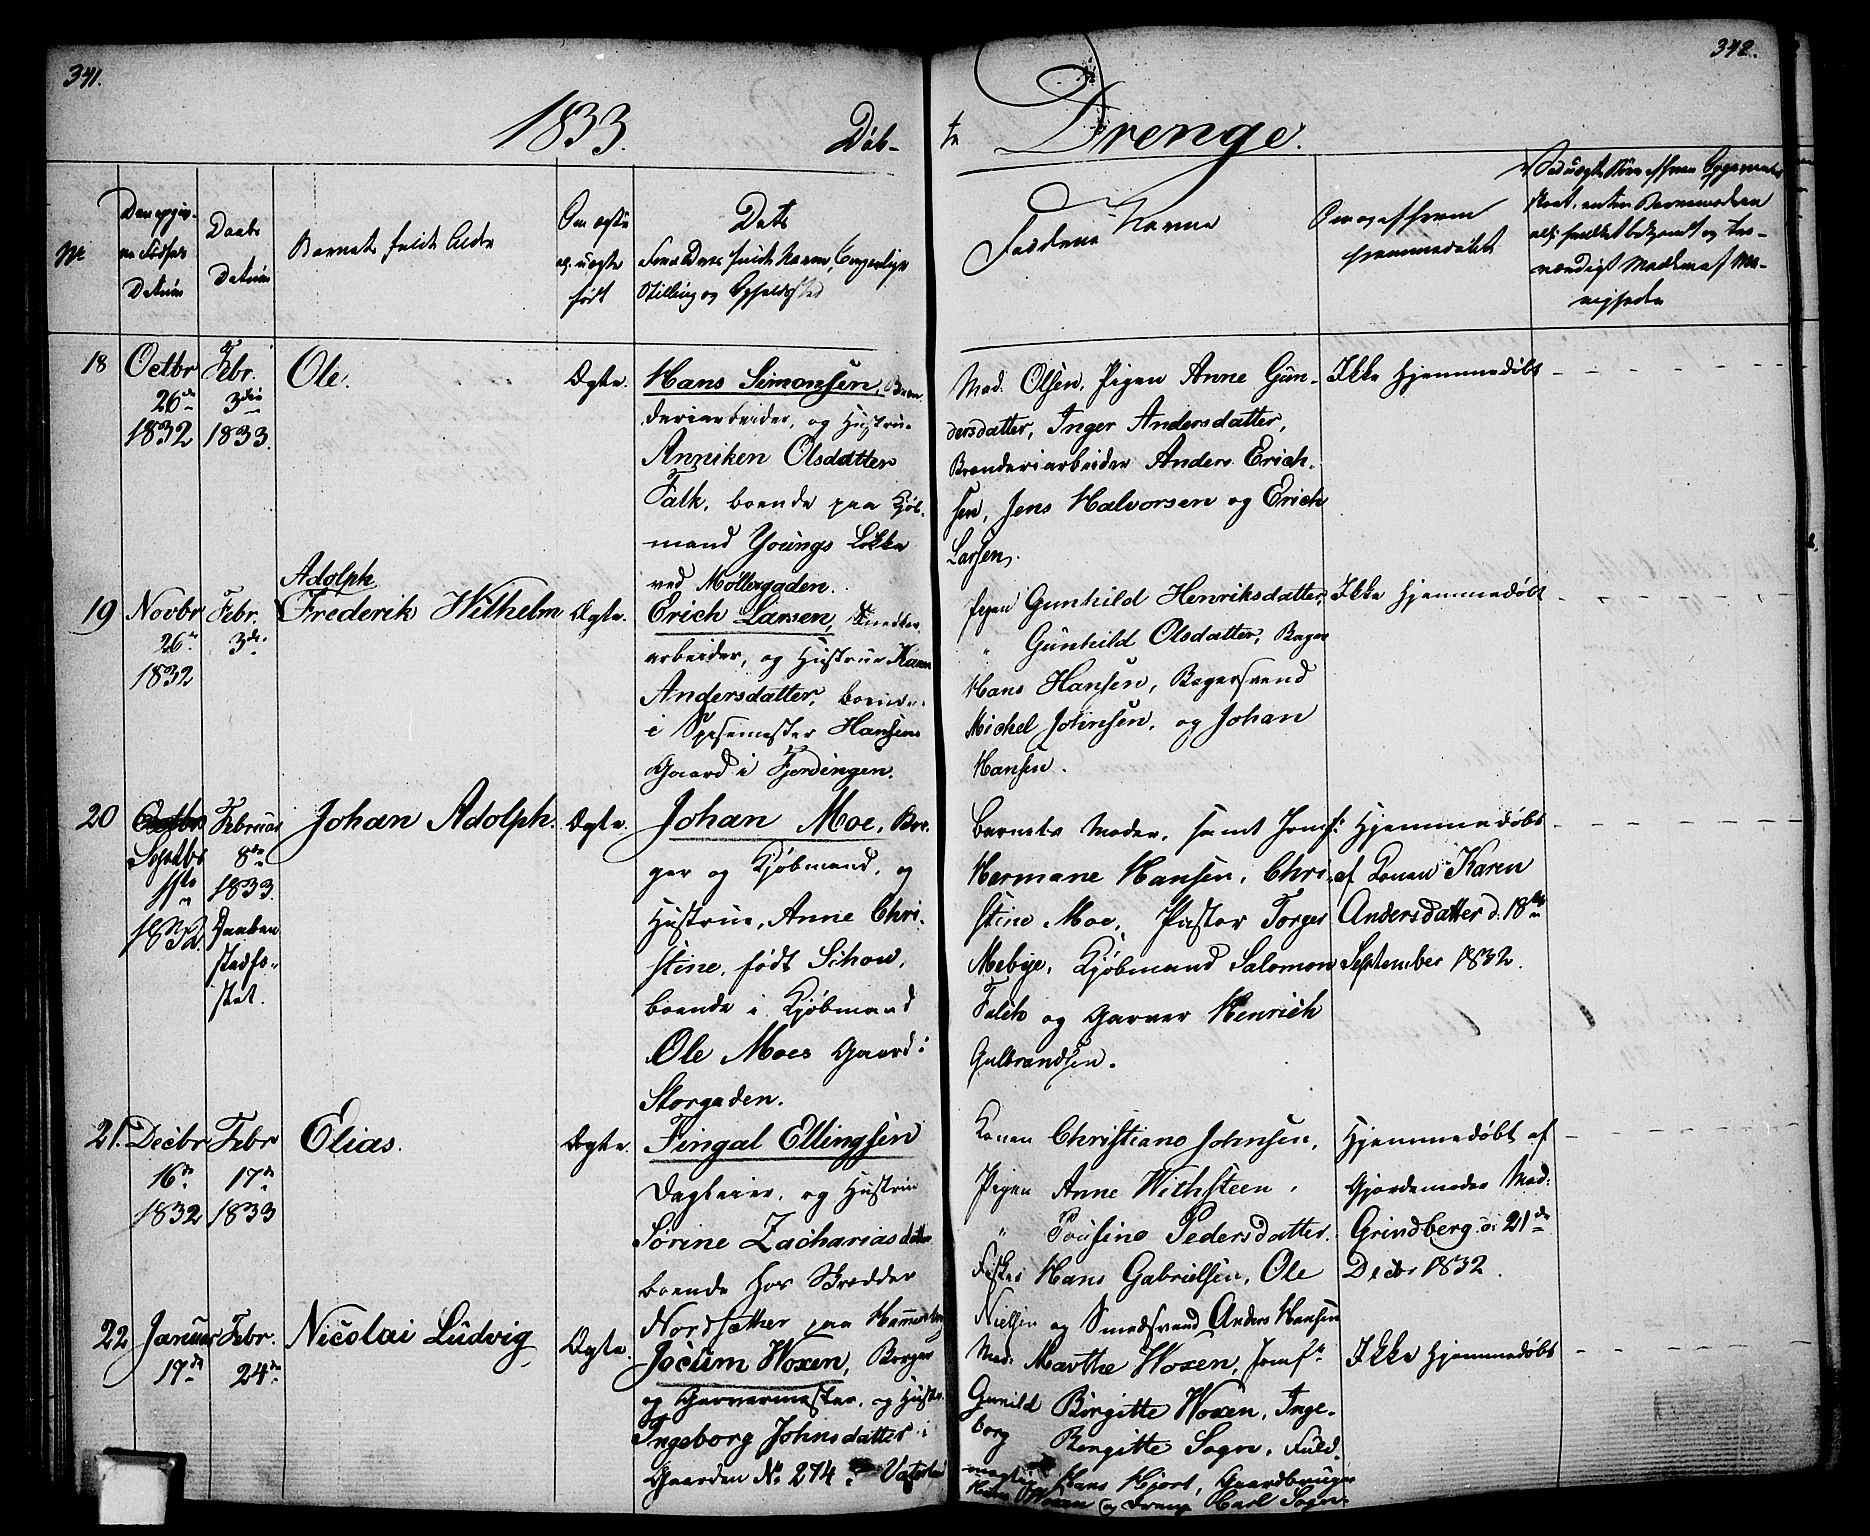 341.
342.
1833.
Døb-
te Drenge.
No
Den opgiv-
ne Fødsels
Datum
Daabs
Datum
Barnets fulde
Om ægte
el. uægte
født
Dets
Forældres fulde Navne, Borgerlige
Stilling og Opholdssted
Faddernes Navne
Om og af hvem
hjemmedøbt
18
Octbr
26de
1832
Febr.
3die
1833.
Ole.
Ægte.
Hans Simonsen,
deriarbeider, og Hustrue
Anniken Olsdatter
Falk, boende paa Kjøb-
mand Youngs Løkke
ved Møllergaden.
Mad. Olsen, Pigen Anne Gun-
dersdatter, Inger Andersdatter,
Brænderiarbeider Anders Erich-
sen, Jens Halvorsen og Erich
Larsen.
Ikke hjemmedøbt
19
Novbr
26de
1832
Febr.
3die
Adolph
Frederik Wilhelm
Ægte.
Erich Larsen,
arbeider, og Hustrue Karen
Andersdatter, boende
i Spisemester Hansens
Gaard i Fjerdingen.
Pigen Gunhild Henriksdatter,
" Gunhild Olsdatter, Bager
Hans Hansen, Bagersvend
Michel Johnsen, og Johan
Hansen.
Ikke hjemmedøbt
20
Septbr
1832
Februar
8de
1833.
Daaben
stadfæ-
stet.
Johan Adolph.
Ægte.
Johan Moe, Bor-
ger og Kjøbmand, og
Hustrue, Anne Chri-
stine, født Schou,
boende i Kjøbmand
Ole Moes Gaard i
Storgaden.
Barnets Moder, samt Jomf:
Hermane Hansen, Chri-
stine Moe, Pastor Torger
Mebye, Kjøbmand Salomon
Falch og Garver Henrich
Gulbrandsen.
Hjemmedøbt
af Konen Karen
Andersdatter d. 18de
September 1832.
21.
Decbr
16de
1832
Febr
17de
1833
Elias.
Ægte.
Fingal Ellingsen
Dagleier, og Hustrue
Sørine Zachariasdatter
boende hos Skredder
Nordsæther paa
Konen Christiane Johnsen,
Pigen Anne Withsteen,
" Pedersdatter.
Fisker Hans Gabrielsen, Ole
Nielsen og Smedsvend Anders Hansen
Hjemmedøbt af
Gjordemoder Mad:
Grindberg d: 21de
Decbr 1832.
22
Januar
17de
Febr.
24de
Nicolai Ludvig
Ægte.
Jocum Woxen, Borger
og Garvermester, og Hustr.
Ingeborg Johnsdatter i
Gaarden No 274
Mad: Marthe Woxen, Jomfr
Gunild Birgitte Woxen, Inge-
borg Birgitte Sogn, Fuld-
mægtig Hans Hjort, Gaardbruger
Woxen og Carl Sogn.
Ikke hjemmedøbt